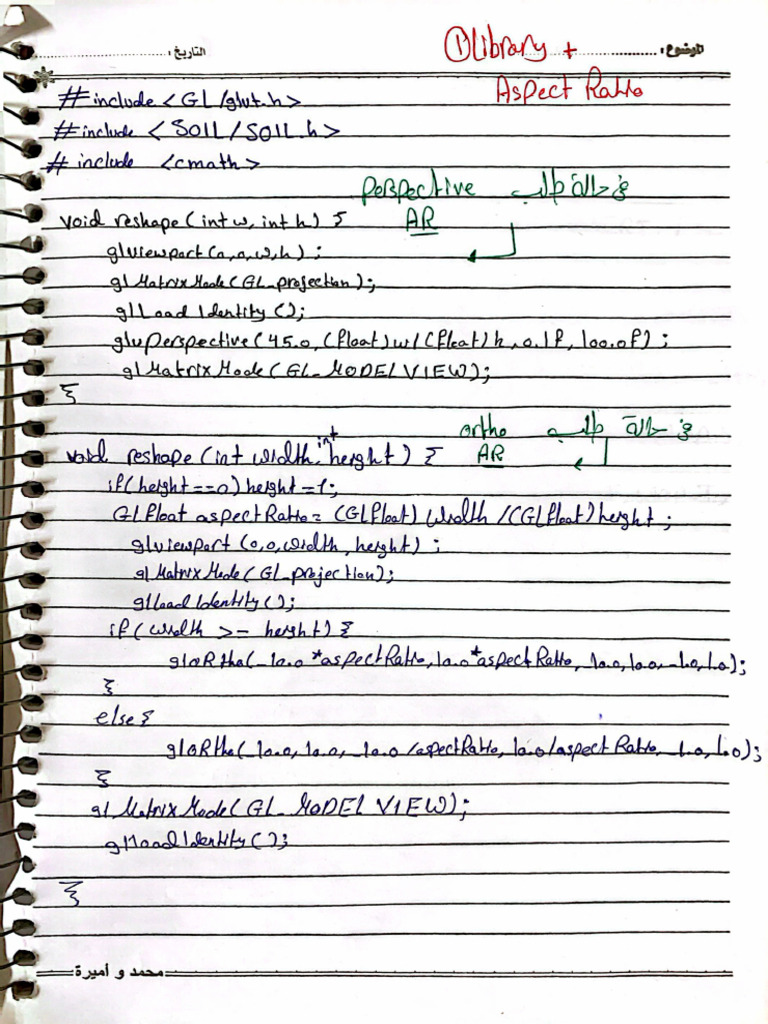 الموضوع : التاريخ :
① Library +
Aspect Ratio
#include <GL/glut.h>
#include <SOIL/SOIL.h>
# include <cmath>
perspective في حالة طلب
AR
void reshape(int w, int h) {
glViewport(0,0,w,h);
glMatrixMode(GL_projection);
glLoadIdentity();
gluPerspective(45.0, (float)w/(float)h, 0.1f, 100.0f);
glMatrixMode(GL_MODELVIEW);
}
ortho في حالة طلب
AR
void reshape(int width, int height) {
if(height==0)height=1;
GLfloat aspectRatio=(GLfloat)width/(GLfloat)height;
glviewport(0,0,width,height);
glMatrixMode(GL_projection);
glLoadIdentity();
if(width >= height){
glORtho(_10.0*aspectRatio,10.0*aspectRatio,_10.0,10.0,_1.0,1.0);
}
else{
glORtho(_10.0,10.0,_10.0/aspectRatio,10.0/aspectRatio,_1.0,1.0);
}
glMatrixMode(GL_MODELVIEW);
glloadIdentity();
}
محمد و أميرة